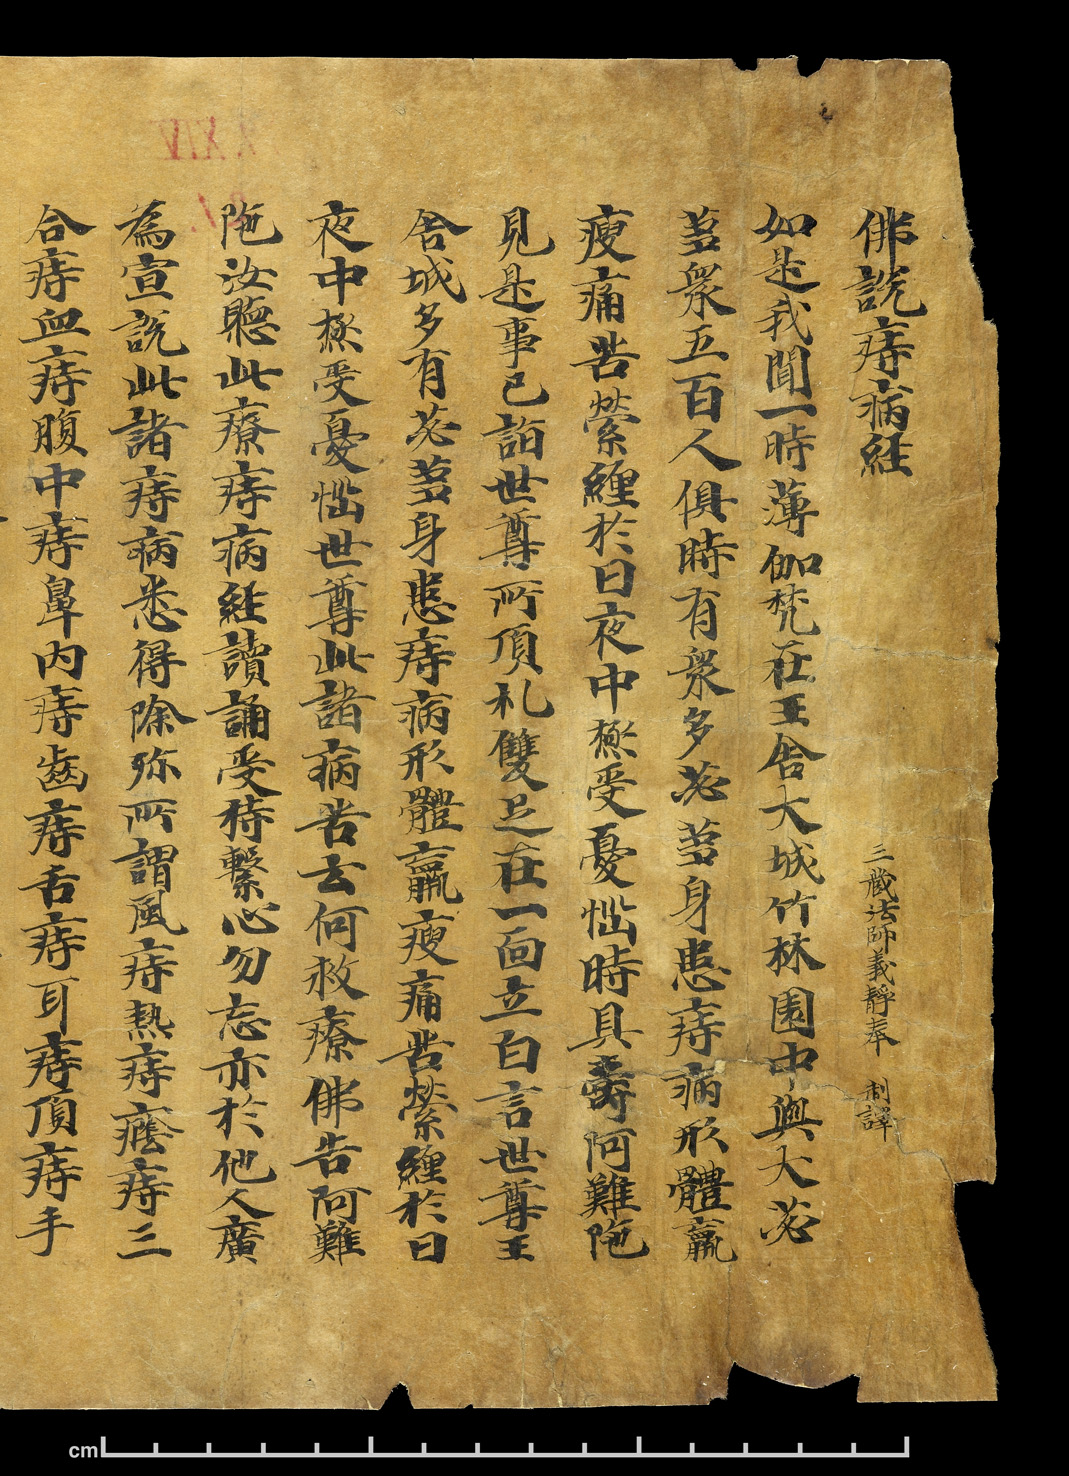 佛說痔病經
三藏法師義靜奉 制譯
如是我聞一時薄伽梵在王舍大城竹林園中與大苾
蒭衆五百人俱時有衆多苾蒭身患痔病形體羸
瘦痛苦縈纏於日夜中極受憂惱時具壽阿難陁
見是事已詣世尊所頂礼雙足在一面立白言世尊王
舍城多有苾蒭身患痔病形體羸瘦痛苦縈纏於日
夜中極受憂惱世尊此諸病苦云何救療佛告阿難
陁汝聽此療痔病經讀誦受持繫心勿忘亦於他人廣
為宣說此諸痔病悉得除殄所謂風痔熱痔癊痔三
合痔血痔腹中痔鼻內痔齒痔舌痔耳痔頂痔手
XXIV